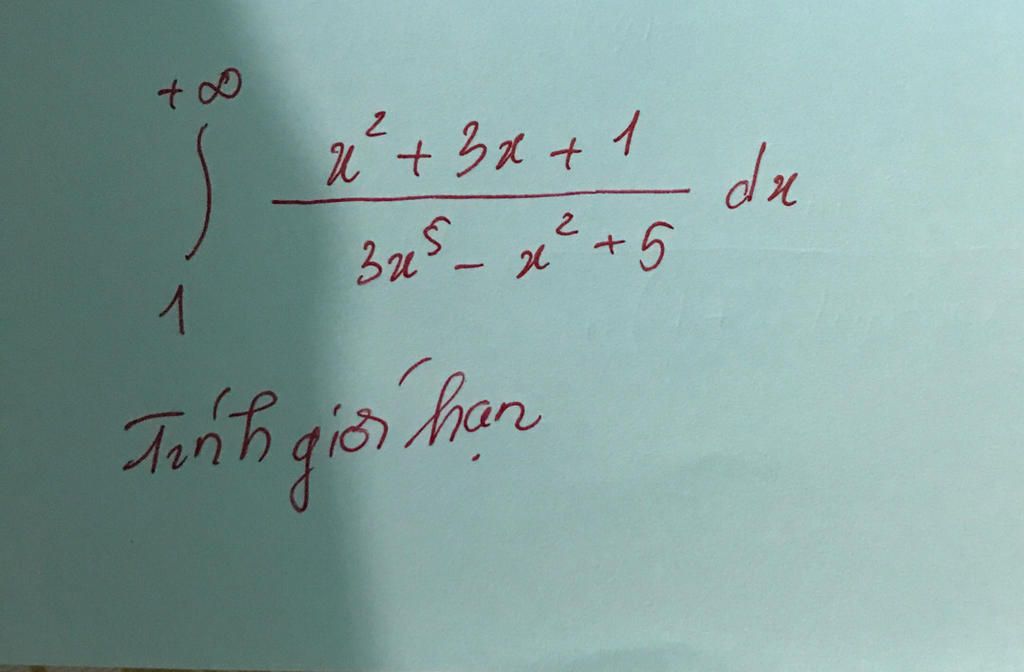 +∞
∫ x² + 3x + 1 dx
3x⁵ - x² + 5
1
Tính giới hạn